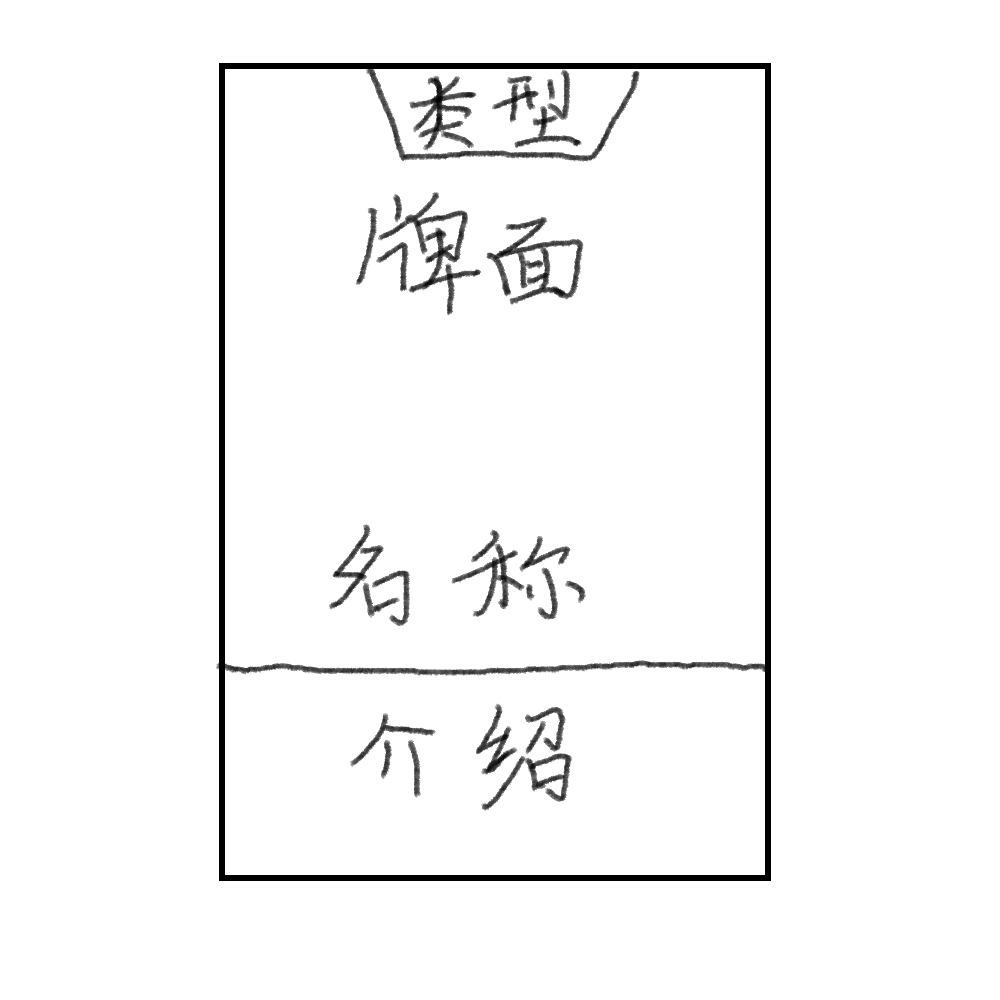 类型
牌面
名称
介绍